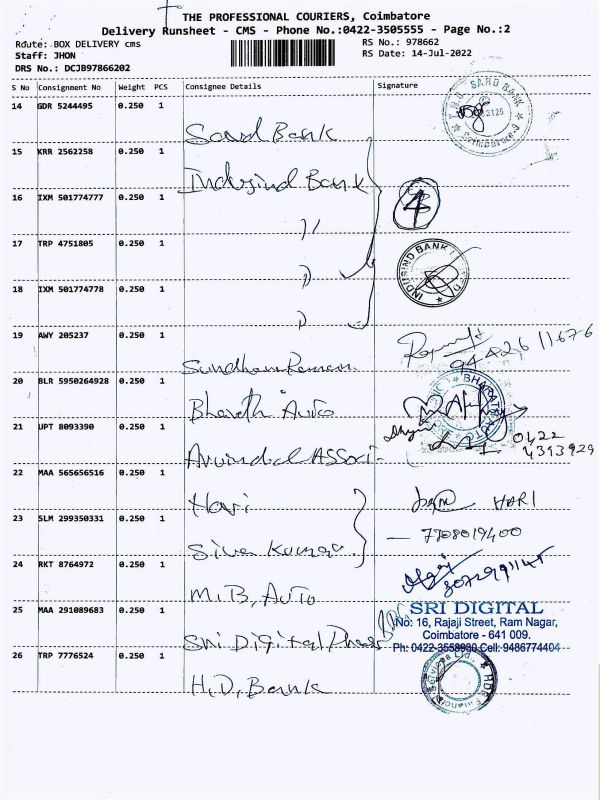 THE PROFESSIONAL COURIERS, Coimbatore
Delivery Runsheet - CMS - Phone No.:0422-3505555 - Page No.:2
Route: BOX DELIVERY cms
RS No.: 978662
Staff: JHON
RS Date: 14-Jul-2022
DRS No.: DCJB97866202
S No Consignment No Weight PCS Consignee Details Signature
14 GDR 5244495 0.250 1
Sard Bank
SARD BANK
15 KRR 2562258 0.250 1
Indusind Bank
16 IXM 501774777 0.250 1
4
17 TRP 4751805 0.250 1
INDUSIND BANK
18 IXM 501774778 0.250 1
19 AWY 205237 0.250 1
Sundhar Raman
94426 11676
20 BLR 5950264928 0.250 1
Bharath Auto
BHARATH
21 UPT 8093390 0.250 1
Arvindd Associ-
0422
4393929
22 MAA 565656516 0.250 1
Hari
HARI
23 SLM 299350331 0.250 1
Siva Kumar
7708019400
24 RKT 8764972 0.250 1
M.B, Auto
25 MAA 291089683 0.250 1
Sri Digital Press
SRI DIGITAL
No: 16, Rajaji Street, Ram Nagar,
Coimbatore - 641 009.
Ph: 0422-3558980 Cell: 9486774404
26 TRP 7776524 0.250 1
H.D, Bank
HDB Financial Services Ltd